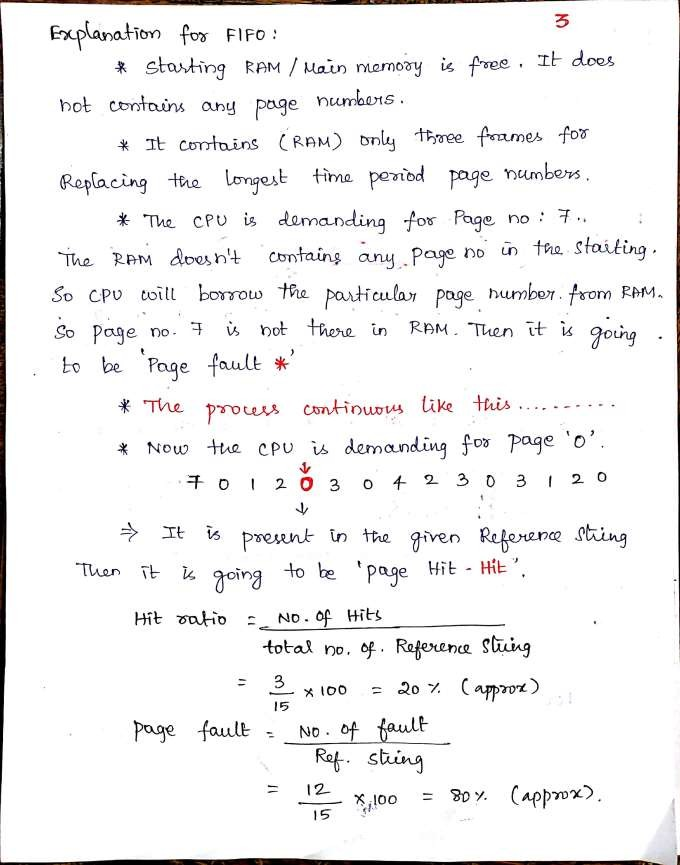 3
Explanation for FIFO :
* Starting RAM / Main memory is free. It does
not contains any page numbers.
* It contains (RAM) only three frames for
Replacing the longest time period page numbers.
* The CPU is demanding for Page no : 7..
The RAM doesn't contains any page no in the starting.
So CPU will borrow the particular page number. from RAM.
So page no. 7 is not there in RAM. Then it is going
to be 'Page fault *'
* The process continuous like this ...........
* Now the CPU is demanding for page '0'.
7 0 1 2 0 3 0 4 2 3 0 3 1 2 0
⇒ It is present in the given Reference String
Then it is going to be 'page Hit - Hit'.
Hit ratio = No. of Hits
total no. of. Reference String
= 3/15 x 100 = 20 % (approx)
page fault = No. of fault
Ref. string
= 12/15 x 100 = 80 % (approx).